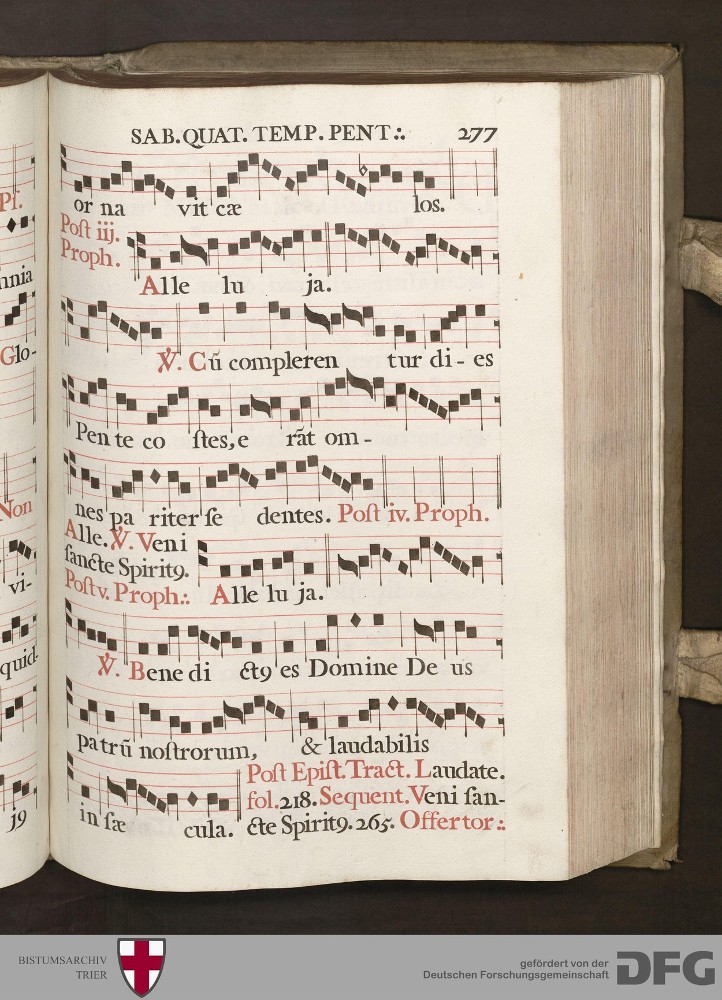 SAB. QUAT. TEMP. PENT.:. 277
or na vit cæ los.
Post iij.
Proph.
Alle lu ja.
℣. Cū compleren tur di - es
Pen te co ſtes, e rāt om -
nes pa riter ſe dentes. Poſt iv. Proph.
Alle. ℣. Veni
ſancte Spirit9.
Poſt v. Proph.:. Alle lu ja.
℣. Bene di ct9 es Domine De us
patrū noſtrorum, & laudabilis
in ſæ cula.
Poſt Epiſt. Tract. Laudate.
fol. 218. Sequent. Veni ſan-
cte Spirit9. 265. Offertor:.
Pſ.
mnia
Glo-
Non
vi-
quid-
19
BISTUMSARCHIV
TRIER
gefördert von der
Deutschen Forschungsgemeinschaft
DFG